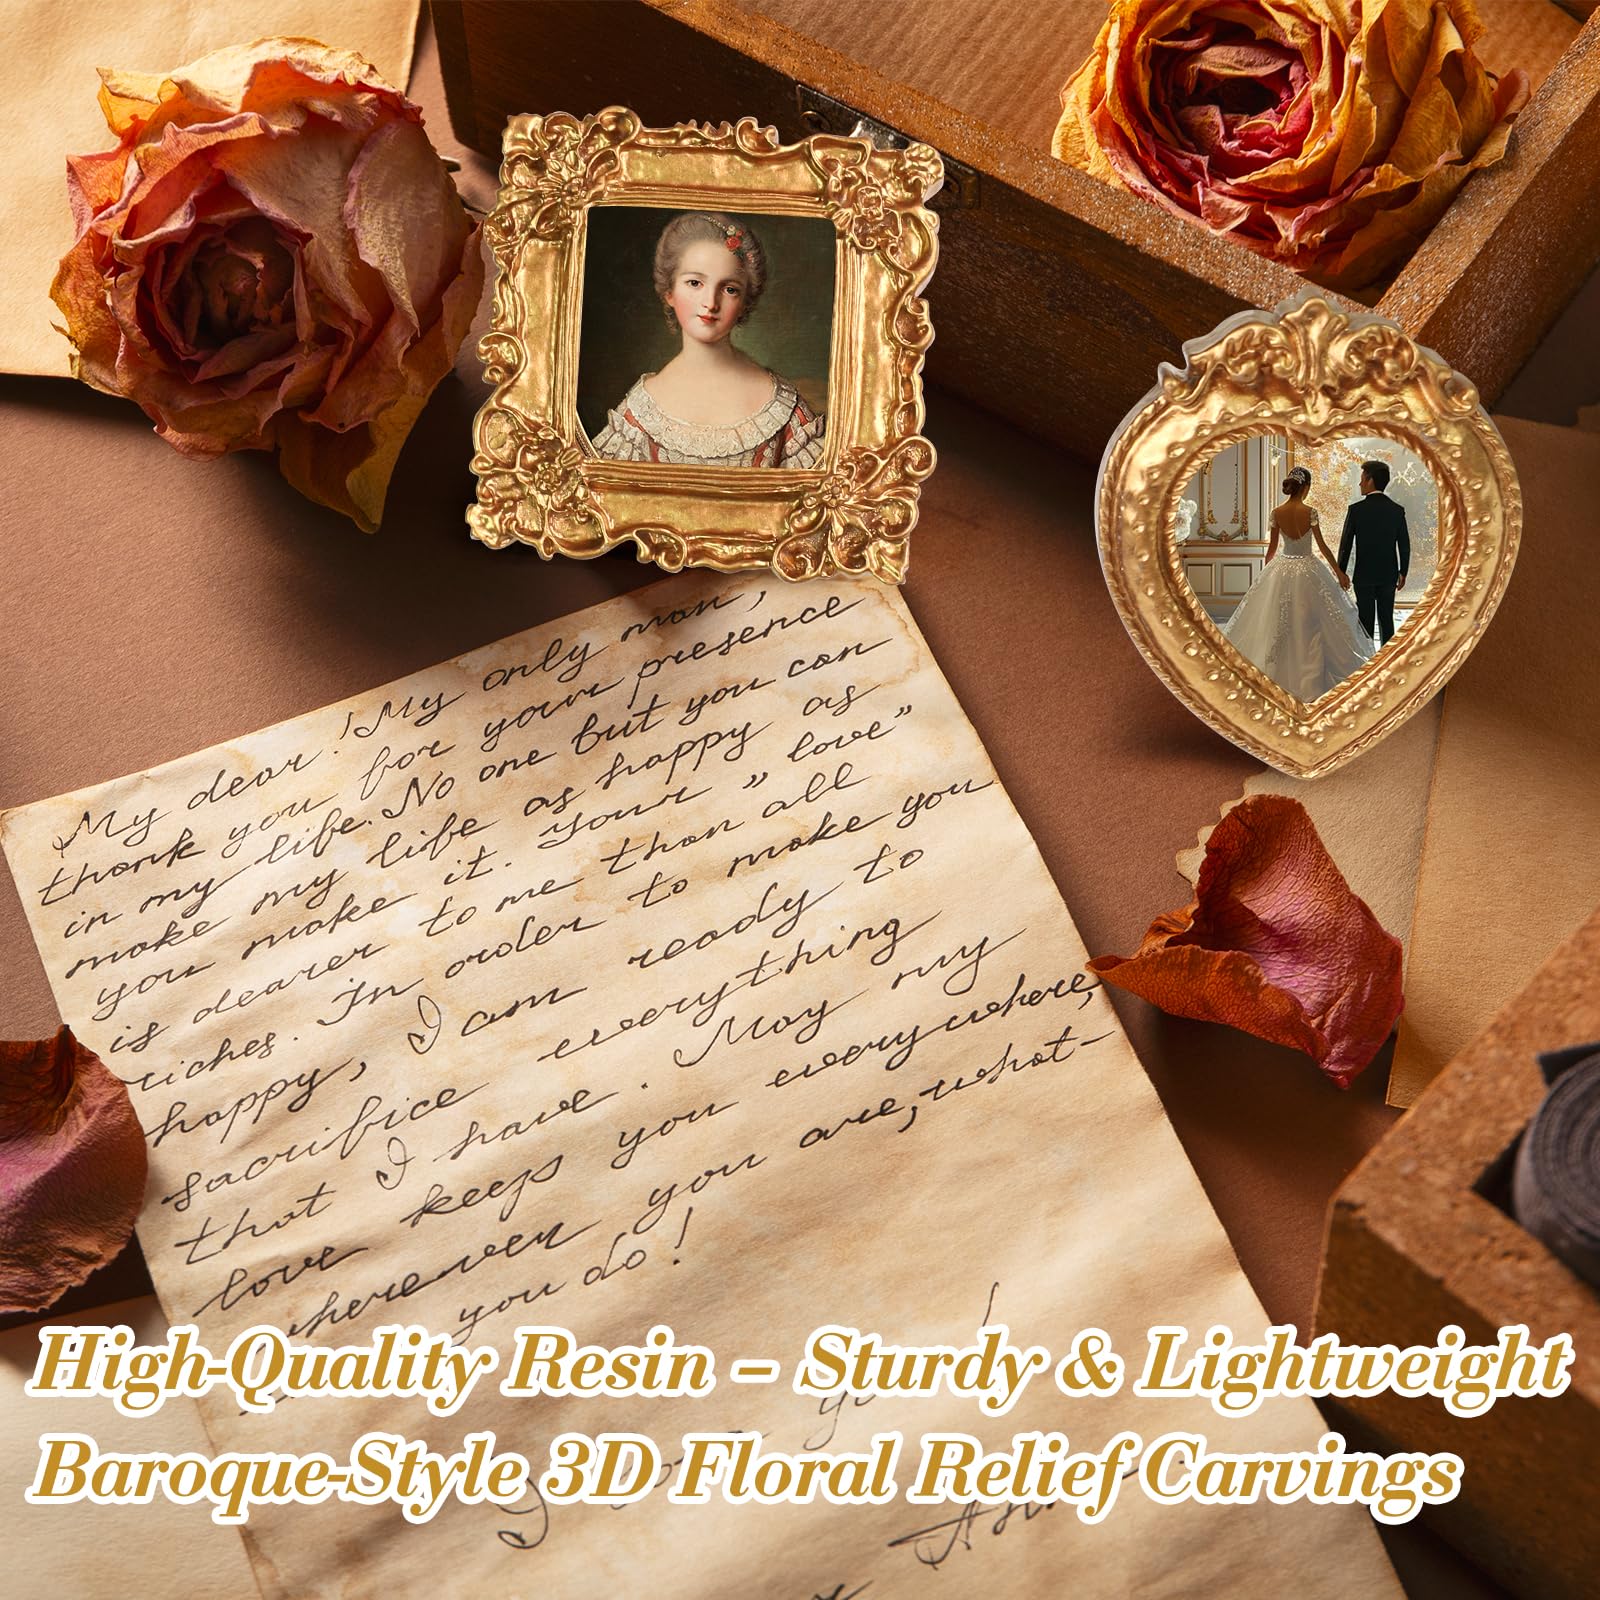 My dear! My only man,
thank you for your presence
in my life. No one but you can
make my life as happy as
you make it. Your „ love”
is dearer to me than all
riches. In order to make you
happy, I am ready to
sacrifice everything
that I have. May my
love keeps you everywhere,
wherever you are, what-
you do!
High-Quality Resin – Sturdy & Lightweight
Baroque-Style 3D Floral Relief Carvings